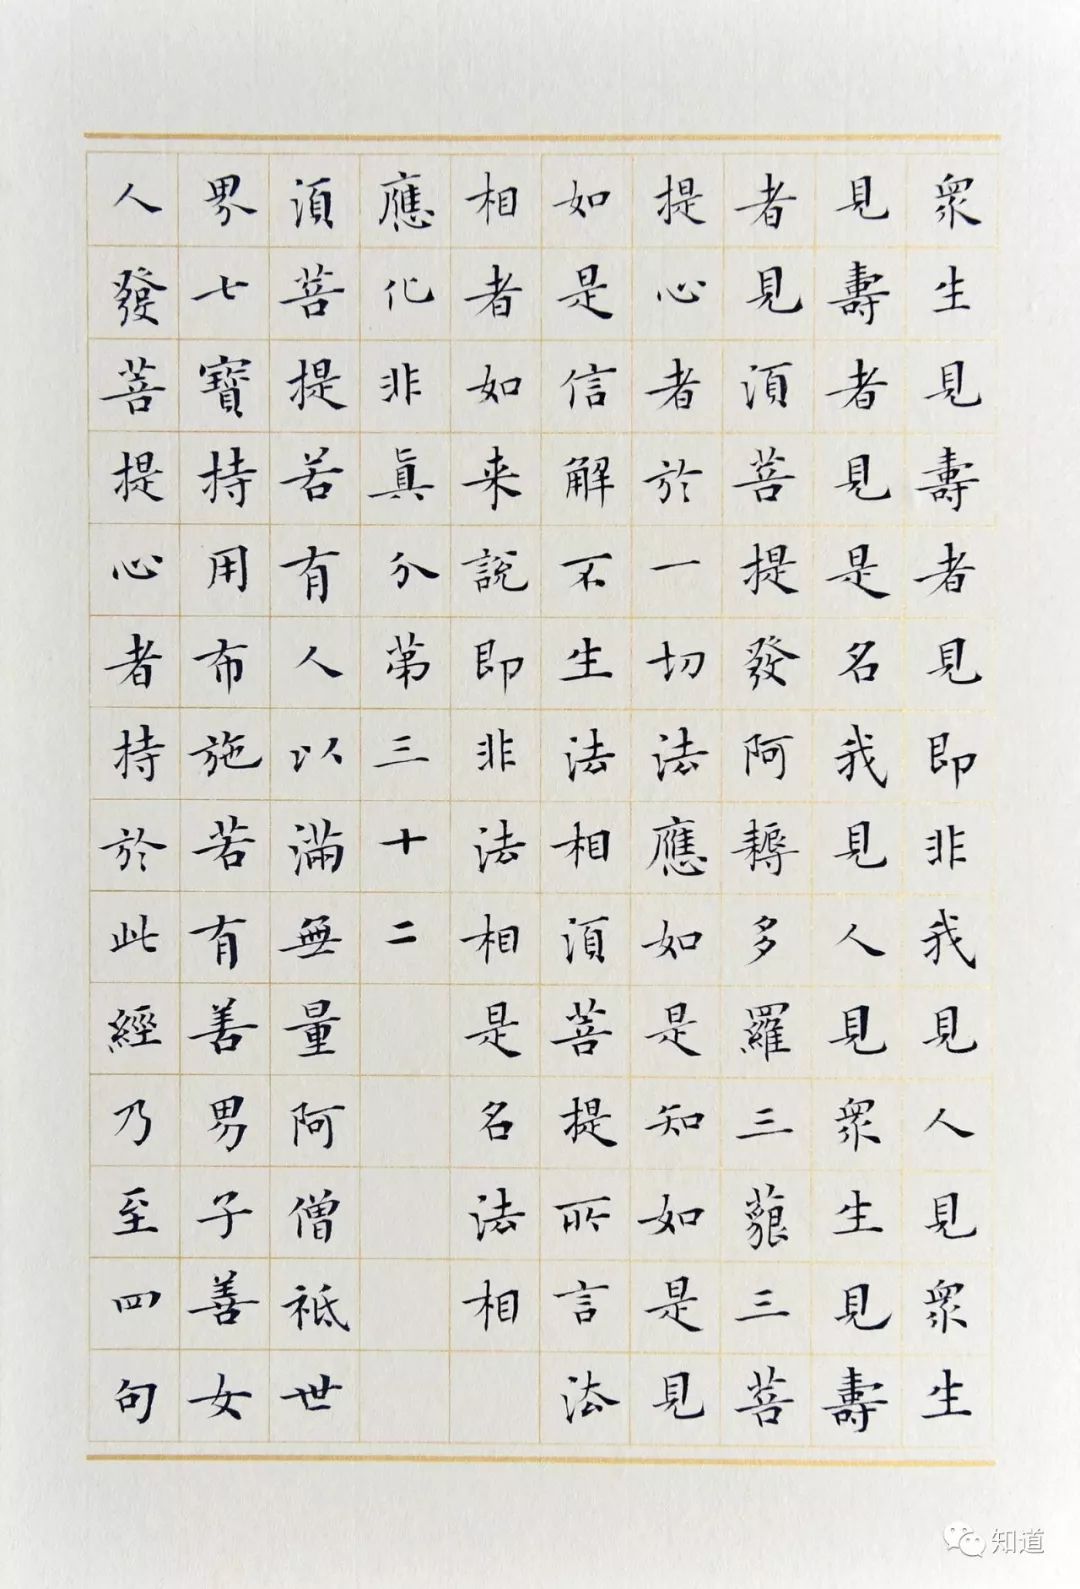 眾生見壽者見即非我見人見眾生
見壽者見是名我見人見眾生見壽
者見須菩提發阿耨多羅三藐三菩
提心者於一切法應如是知如是見
如是信解不生法相須菩提所言法
相者如来說即非法相是名法相
應化非真分第三十二
須菩提若有人以滿無量阿僧祇世
界七寶持用布施若有善男子善女
人發菩提心者持於此經乃至四句
知道